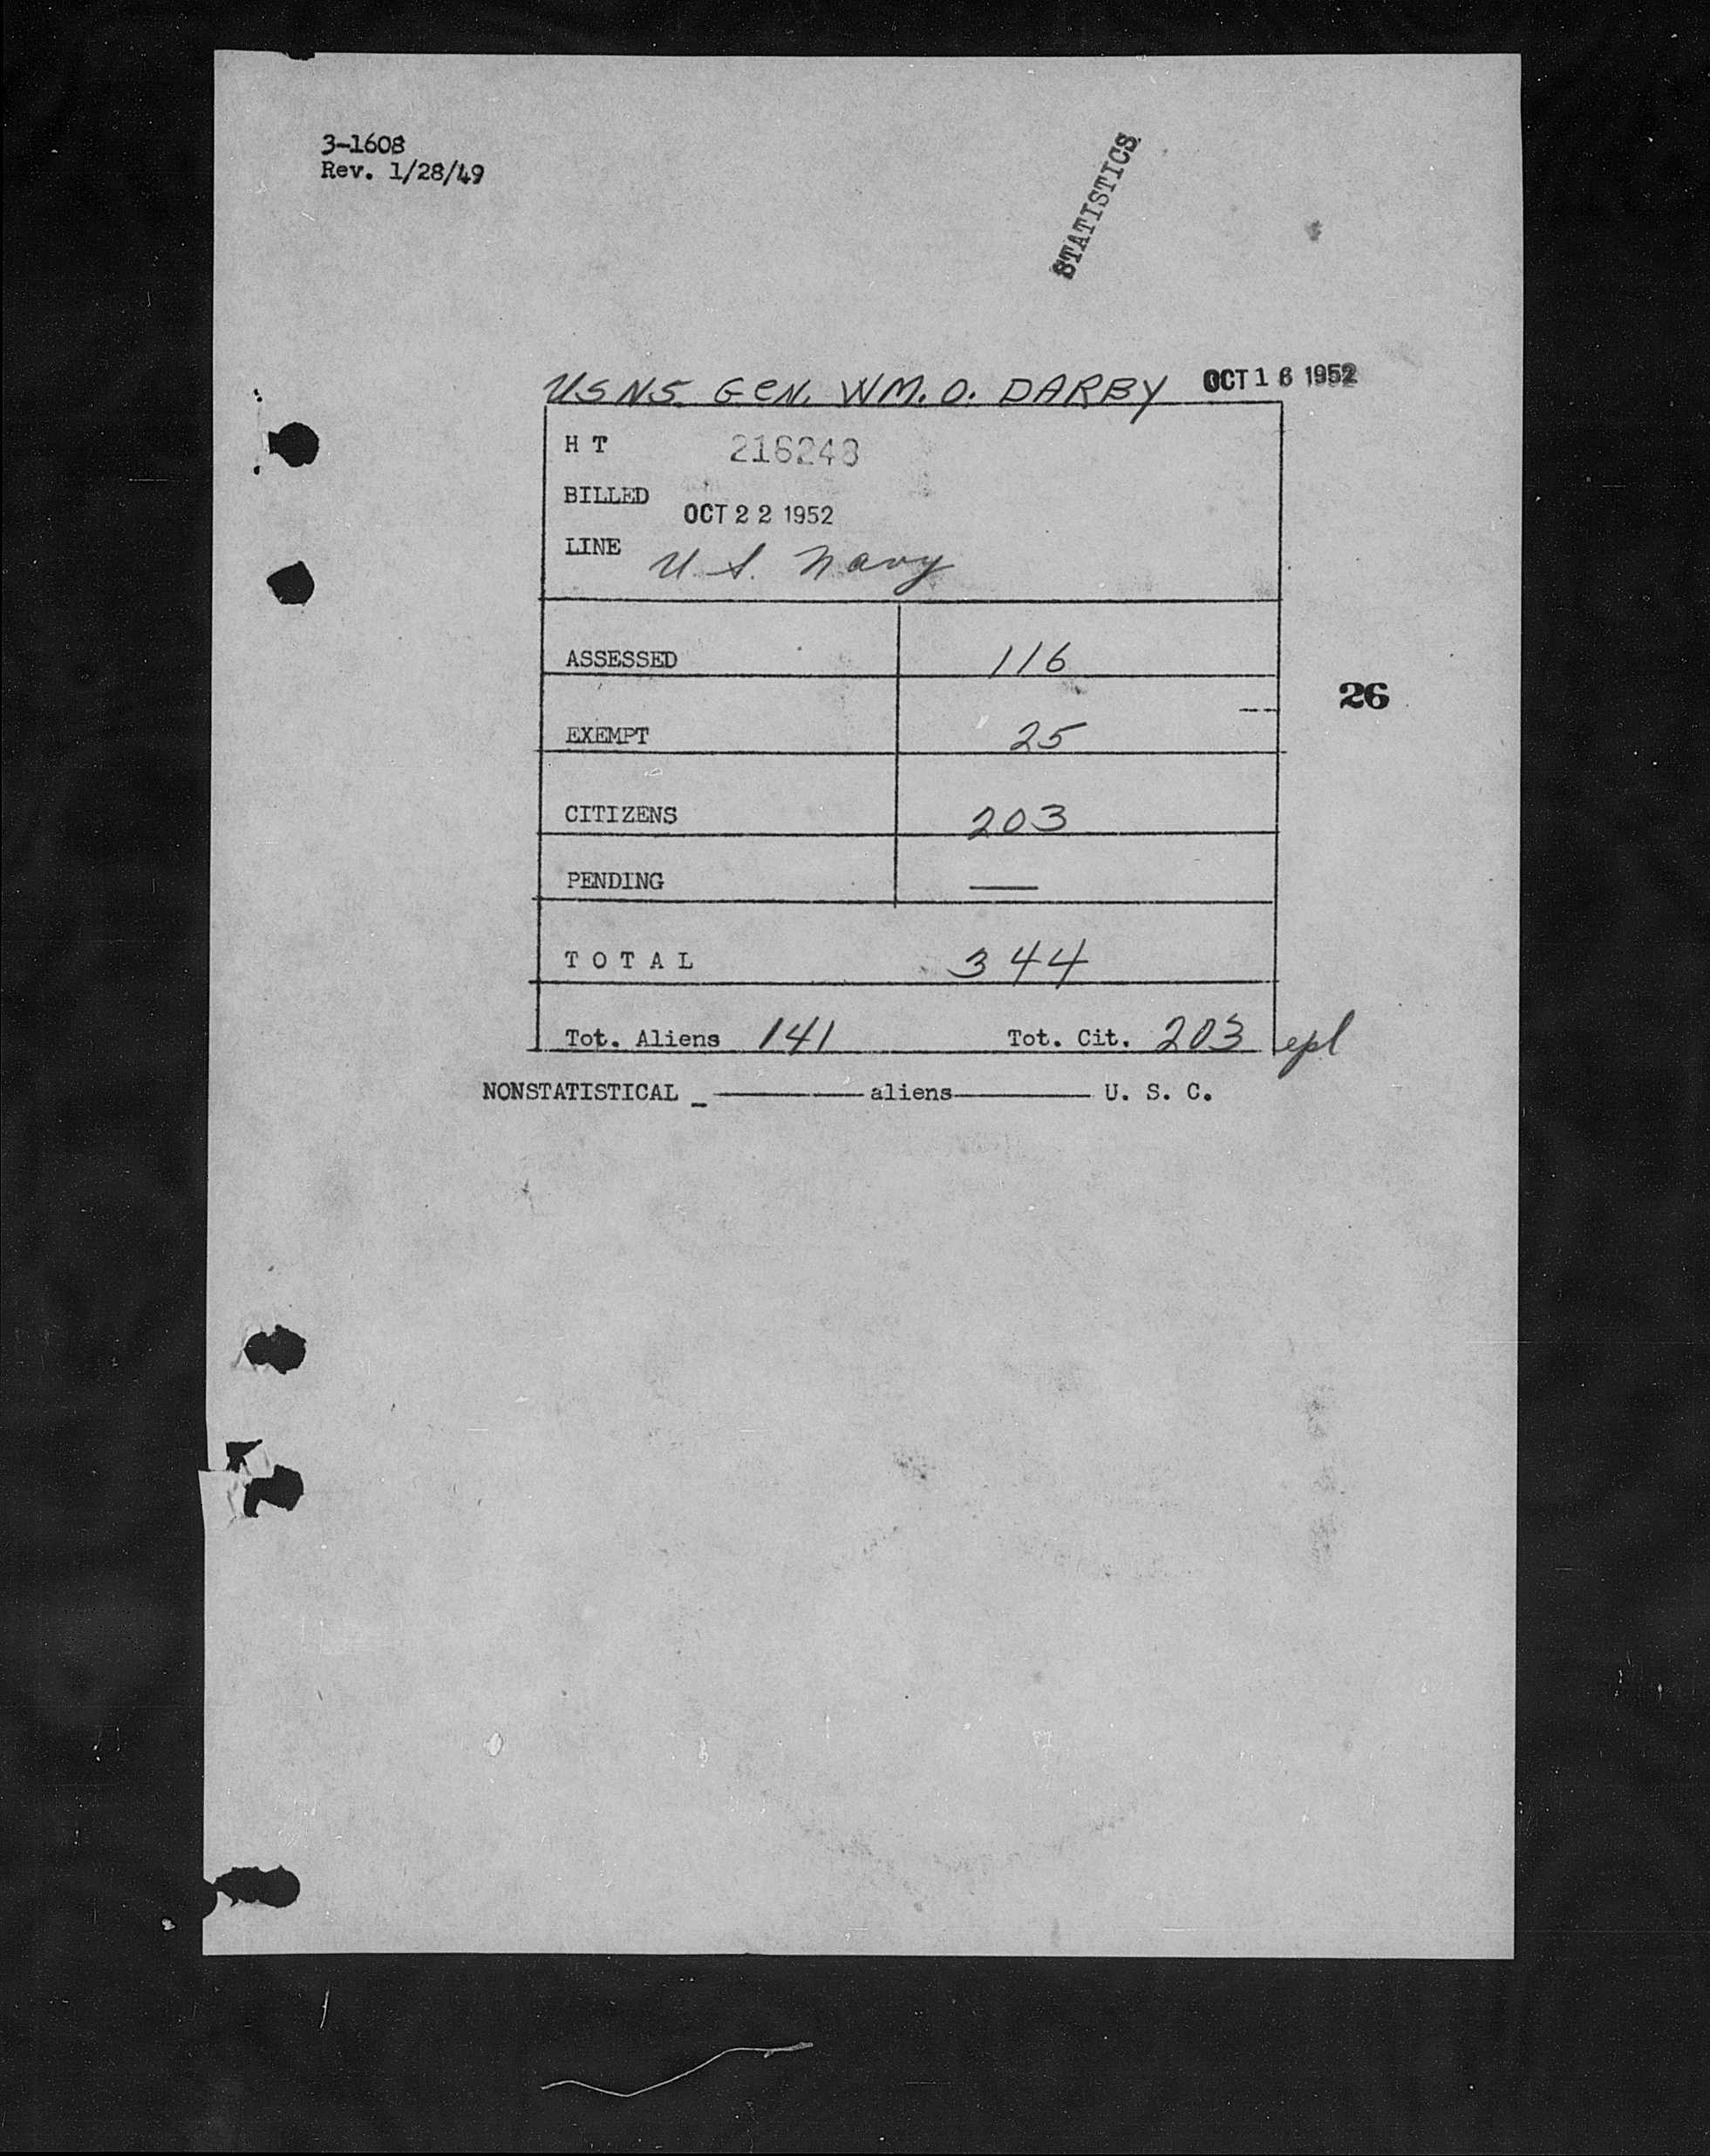 3-1608
Rev. 1/28/49
STATISTICS
USNS. GEN. WM. O. DARBY OCT 16 1952
H T 216248
BILLED OCT 22 1952
LINE U. S. Navy
ASSESSED 116
26
EXEMPT 25
CITIZENS 203
PENDING —
T O T A L 344
Tot. Aliens 141 Tot. Cit. 203 epl
NONSTATISTICAL _ ——— aliens ——— U. S. C.